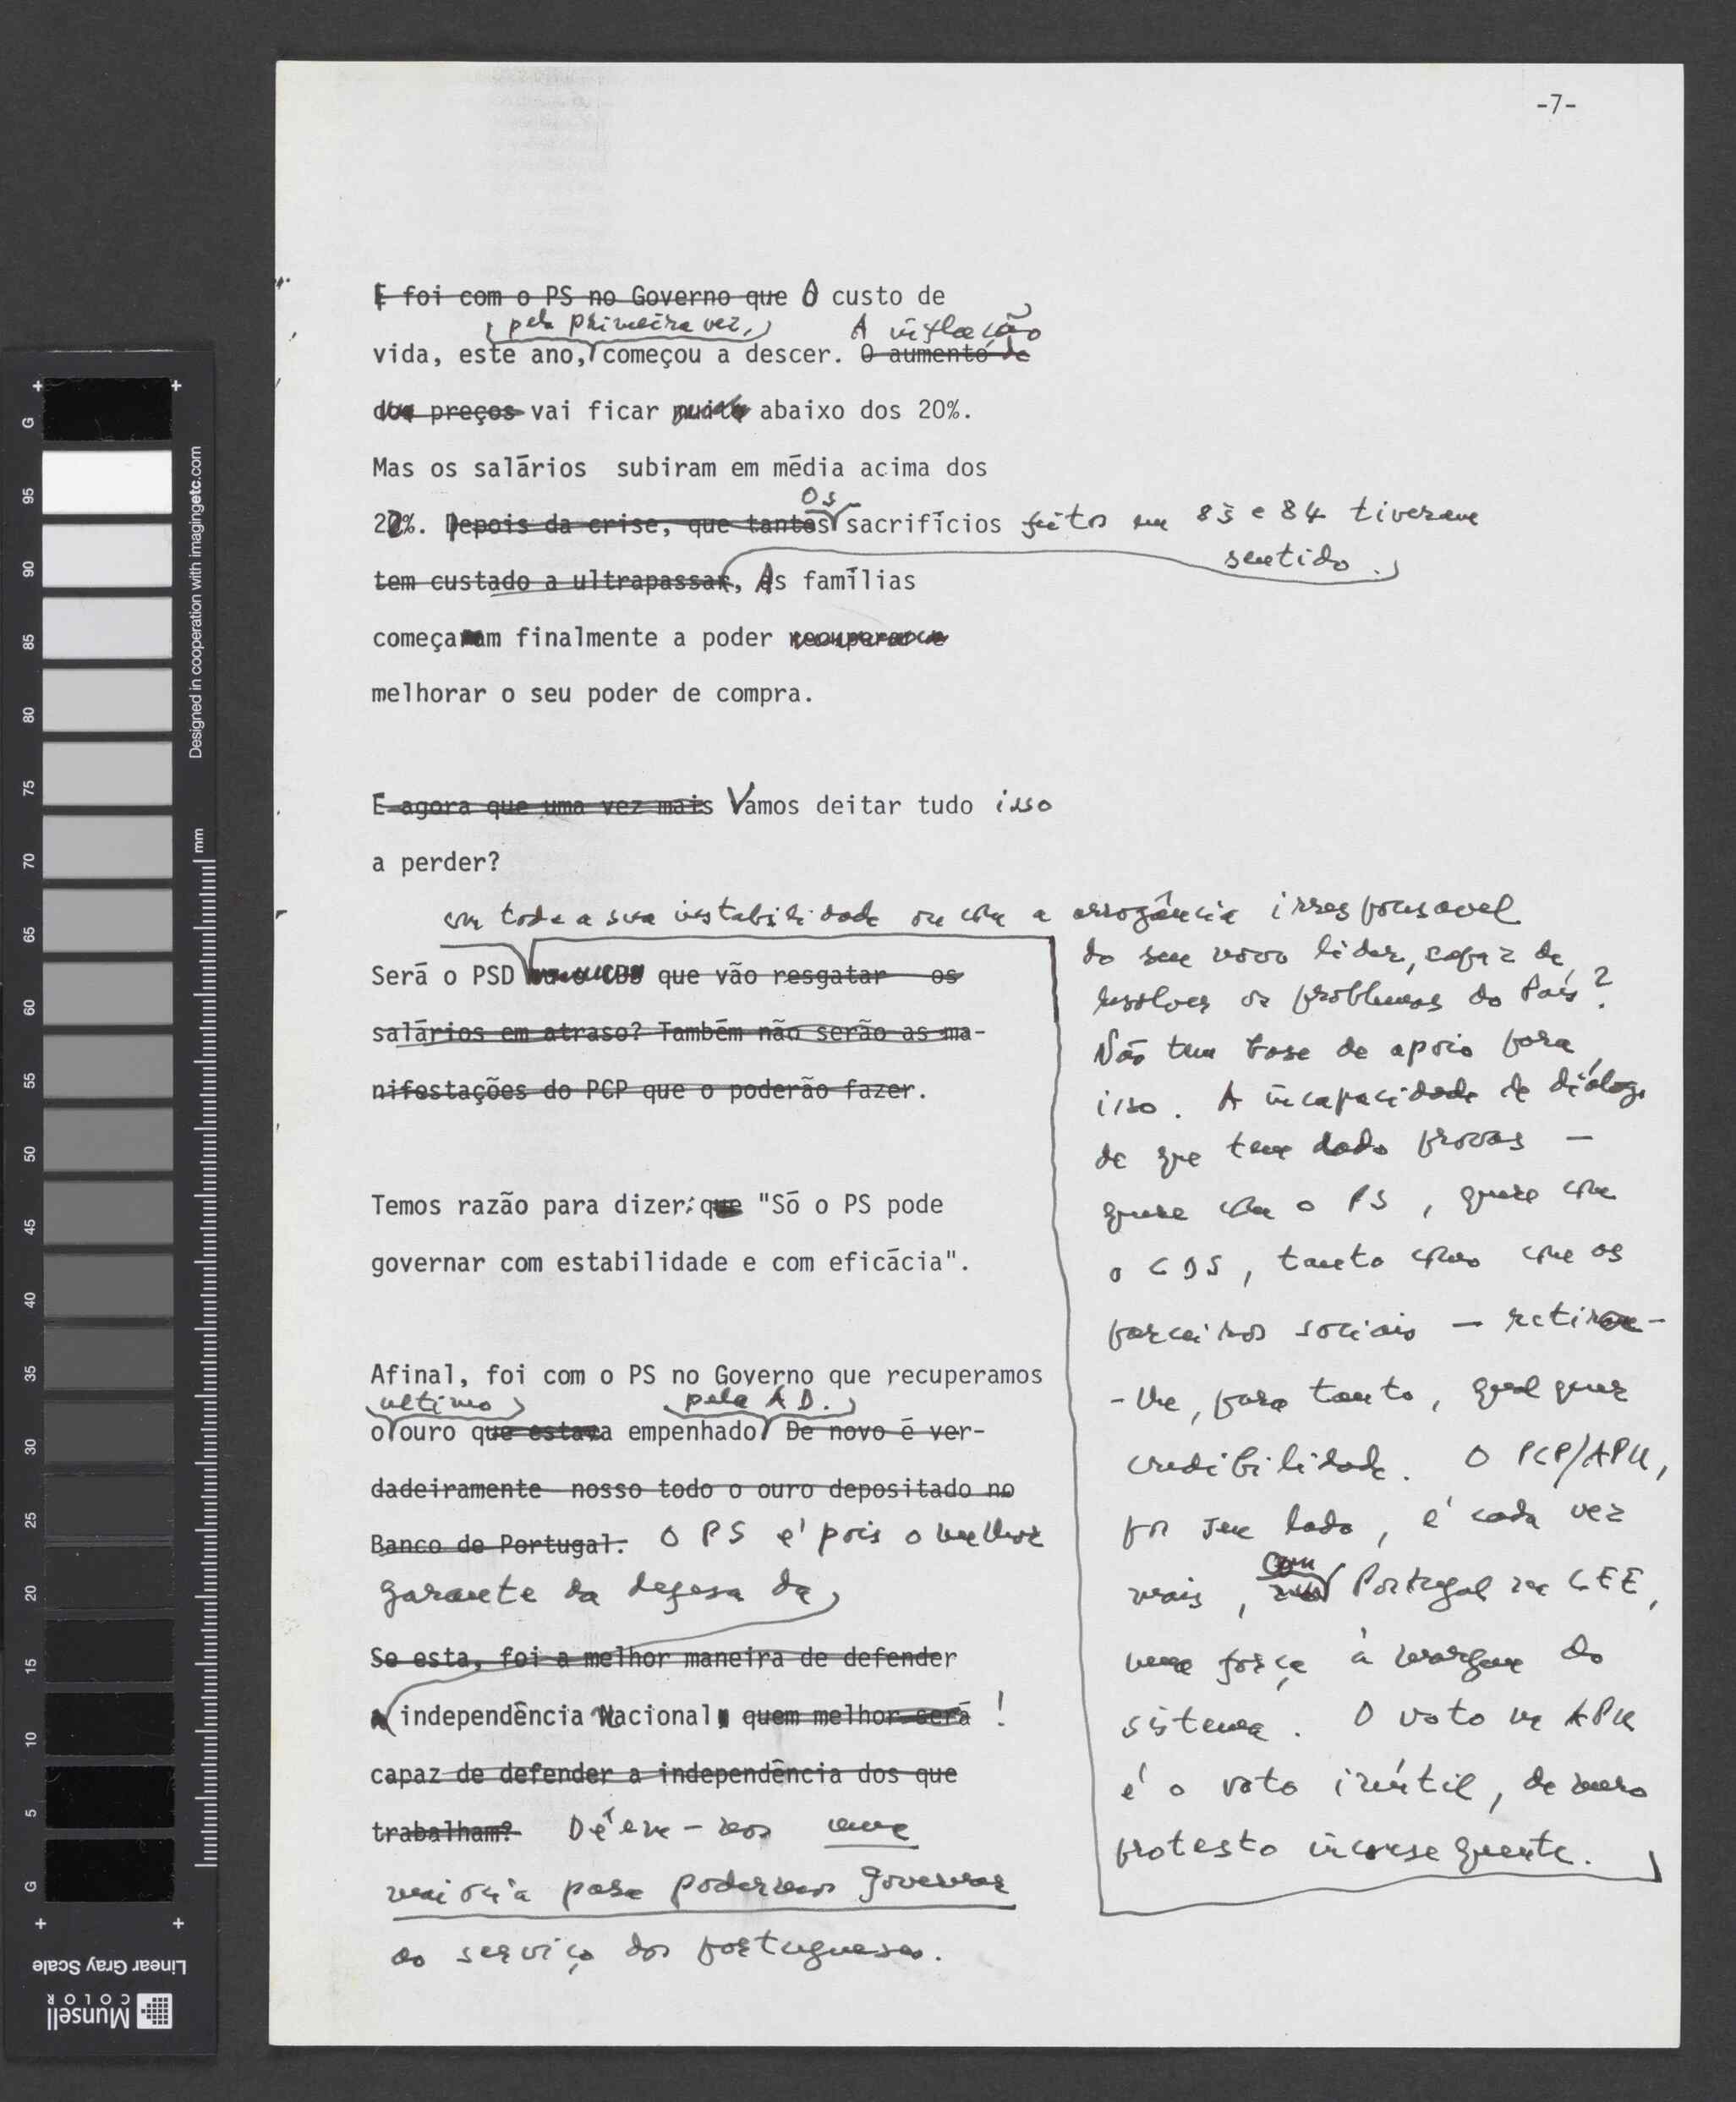 -7-
E foi com o PS no Governo que O custo de
pela primeira vez, A inflação
vida, este ano, começou a descer. O aumento de
dos preços vai ficar muito abaixo dos 20%.
Mas os salários subiram em média acima dos
os
22%. Depois da crise, que tantos sacrifícios feitos em 83 e 84 tiveram
sentido.
tem custado a ultrapassar, As famílias
começaram finalmente a poder recuperar e
melhorar o seu poder de compra.
E agora que uma vez mais Vamos deitar tudo isso
a perder?
com toda a sua instabilidade ou com a arrogância irresponsavel
do seu novo lider, capaz de
Será o PSD ou o CDS que vão resgatar os
resolver os problemas do País?
salários em atraso? Também não serão as ma-
Não tem base de apoio para
nifestações do PCP que o poderão fazer.
isso. A incapacidade de diálogo
de que tem dado provas —
Temos razão para dizer: que "Só o PS pode
quer com o PS, quer com
governar com estabilidade e com eficácia".
o CDS, tanto como com os
parceiros sociais — retira-
Afinal, foi com o PS no Governo que recuperamos
último pela AD.
-lhe, para tanto, qualquer
o ouro que estava empenhado De novo é ver-
credibilidade. O PCP/APU,
dadeiramente nosso todo o ouro depositado no
por seu lado, é cada vez
Banco de Portugal. O PS é pois o melhor
com
garante da defesa da
mais, Portugal na CEE,
Se esta, foi a melhor maneira de defender
uma força à margem do
a independência Nacional, quem melhor será !
sistema. O voto na APU
capaz de defender a independência dos que
é o voto inútil, de mero
trabalham? Dêem-nos uma
protesto inconsequente.
maioria para podermos governar
ao serviço dos portugueses.
G 95 90 85 80 75 70 65 60 55 50 45 40 35 30 25 20 15 10 5 G
mm
Designed in cooperation with imagingetc.com
Linear Gray Scale
Munsell
COLOR